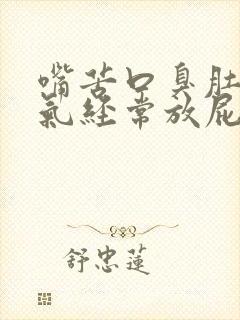 嘴苦口臭肚
氣經常放屁
舒忠蓮